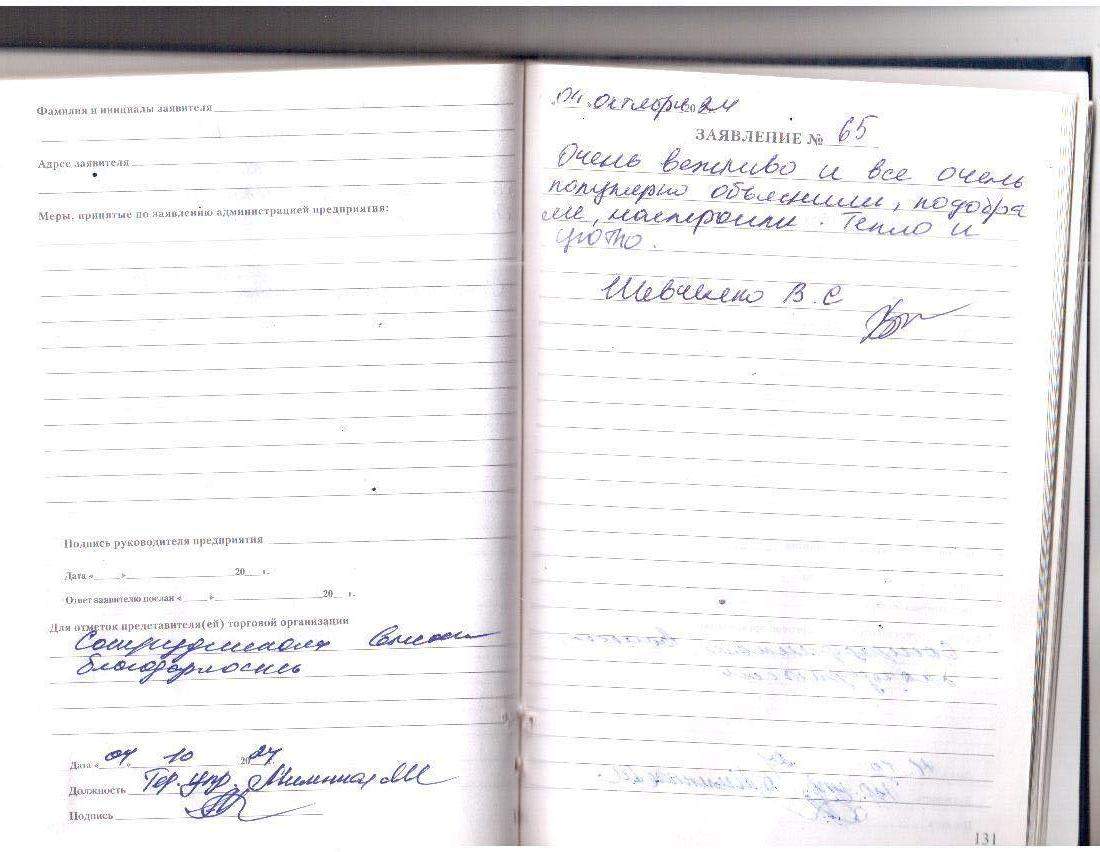 Фамилия и инициалы заявителя
Адрес заявителя
Меры, принятые по заявлению администрацией предприятия:
Подпись руководителя предприятия
Дата « » 20 г.
Ответ заявителю послан « » 20 г.
Для отметок представителя(ей) торговой организации
Сотрудникам
благодарность
Дата « 04 » 10 2024
Должность Тер. упр.
Подпись
« 04 » октября 2024
ЗАЯВЛЕНИЕ № 65
Очень вежливо и все очень
популярно объяснили, подобра
ли, настроили. Тепло и
уютно.
Шевченко В. С
131